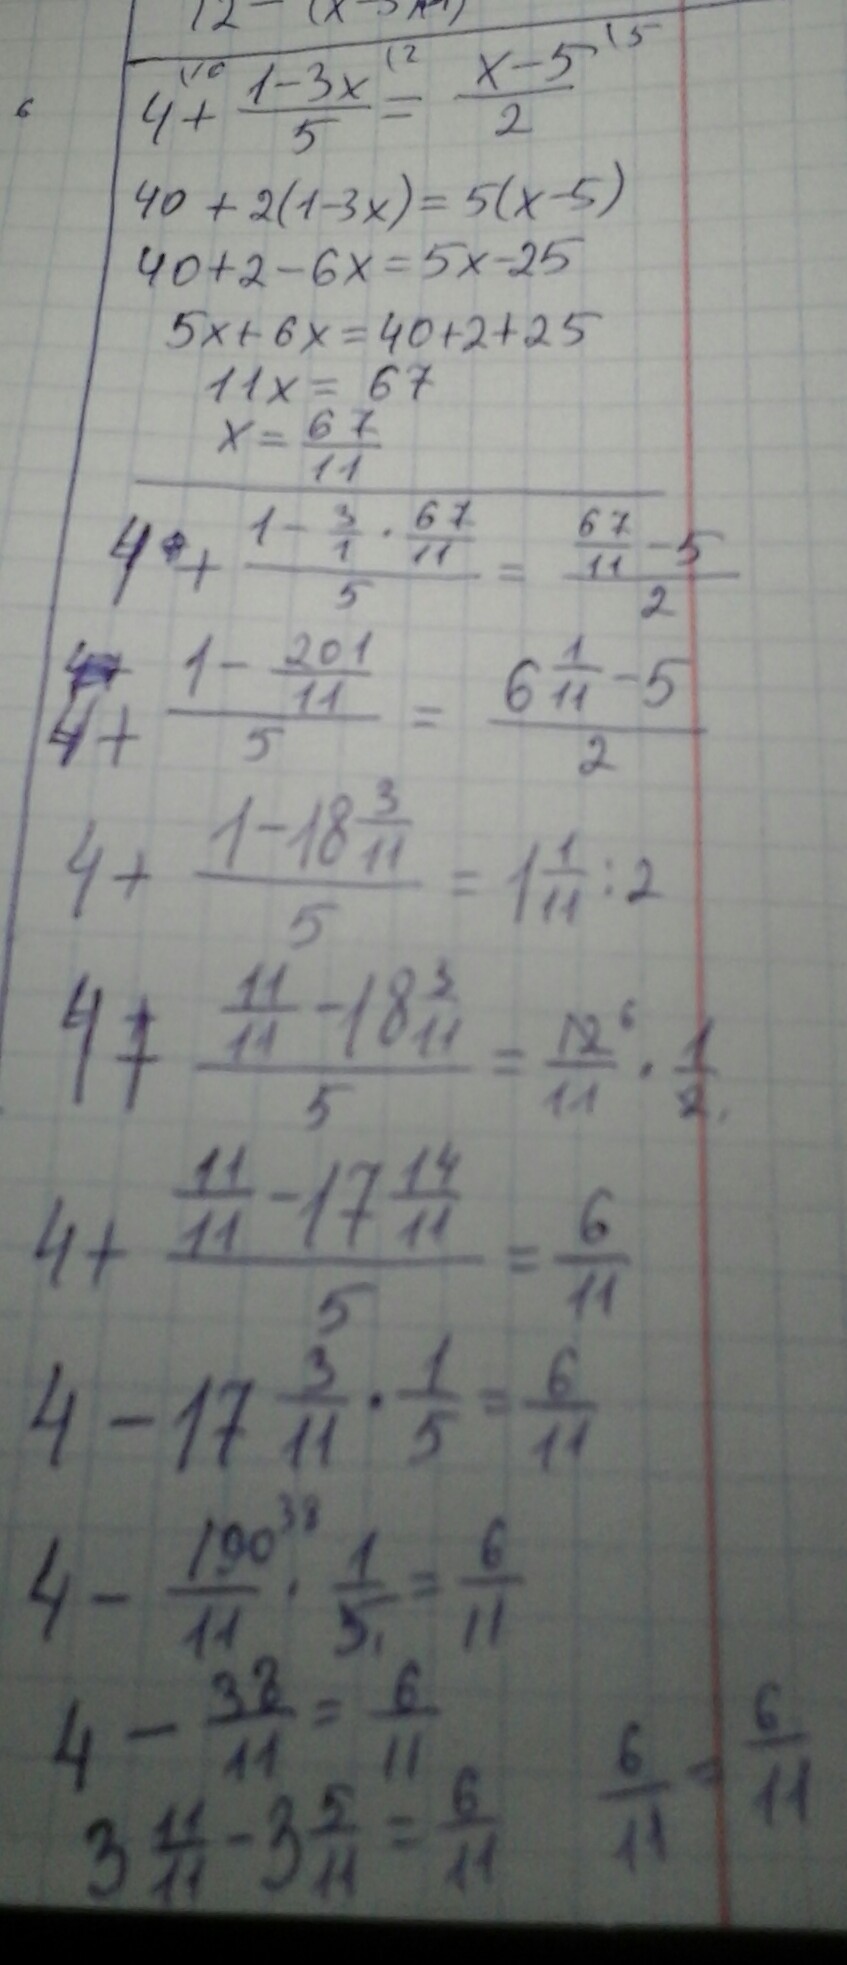 12 - (x-5x+1)
6
4\10 + (1-3x)/5 \2 = (x-5)/2 \5
40 + 2(1-3x) = 5(x-5)
40+2-6x=5x-25
5x+6x=40+2+25
11x = 67
x = 67/11
4 + (1 - 3/1 · 67/11)/5 = (67/11 - 5)/2
4 + (1 - 201/11)/5 = (6 1/11 - 5)/2
4 + (1-18 3/11)/5 = 1 1/11 : 2
4 + (11/11 - 18 3/11)/5 = 12 6/11 · 1/2 1
4 + (11/11 - 17 14/11)/5 = 6/11
4 - 17 3/11 · 1/5 = 6/11
4 - 190 38/11 · 1/5 1 = 6/11
4 - 38/11 = 6/11
3 11/11 - 3 5/11 = 6/11 6/11 = 6/11